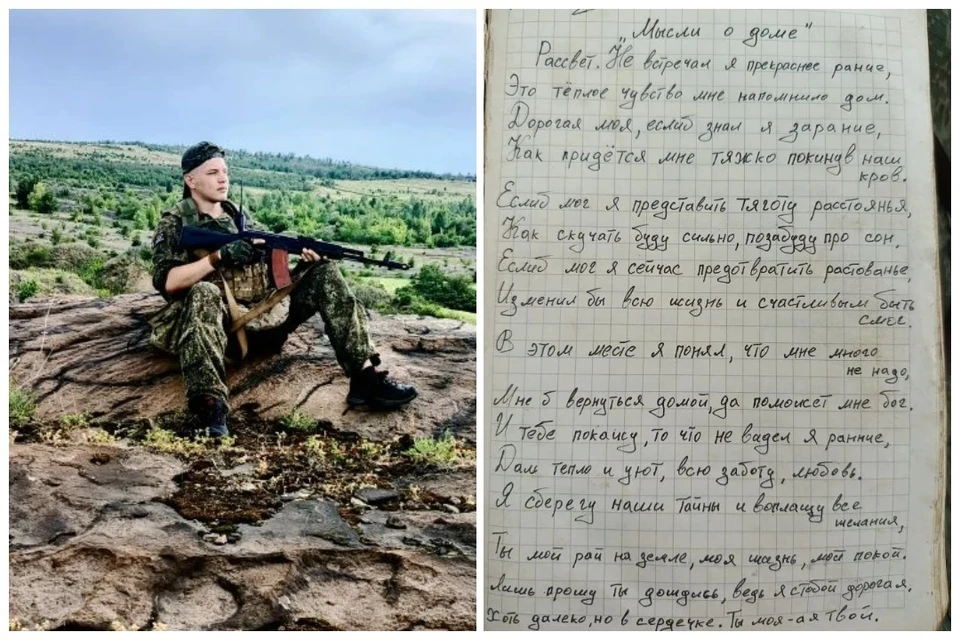 „Мысли о доме"
Рассвет. Не встречал я прекраснее рание,
Это тёплое чувство мне напомнило дом.
Дорогая моя, еслиб знал я зарание,
Как придётся мне тяжко покинув наш
кров.
Еслиб мог я представить тяготу расстоянья,
Как скучать буду сильно, позабуду про сон.
Еслиб мог я сейчас предотвратить растованье,
Изменил бы всю жизнь и счастливым быть
смог.
В этом месте я понял, что мне много
не надо,
Мне б вернуться домой, да поможет мне бог.
И тебе покажу, то что не видел я ранние,
Дам тепло и уют, всю заботу, любовь.
Я сберегу наши тайны и воплащу все
желания,
Ты мой рай на земле, моя жизнь, мой покой.
Лишь прошу ты дождись, ведь я стобой дорогая,
Хоть далеко, но в сердечке. Ты моя-а я твой.